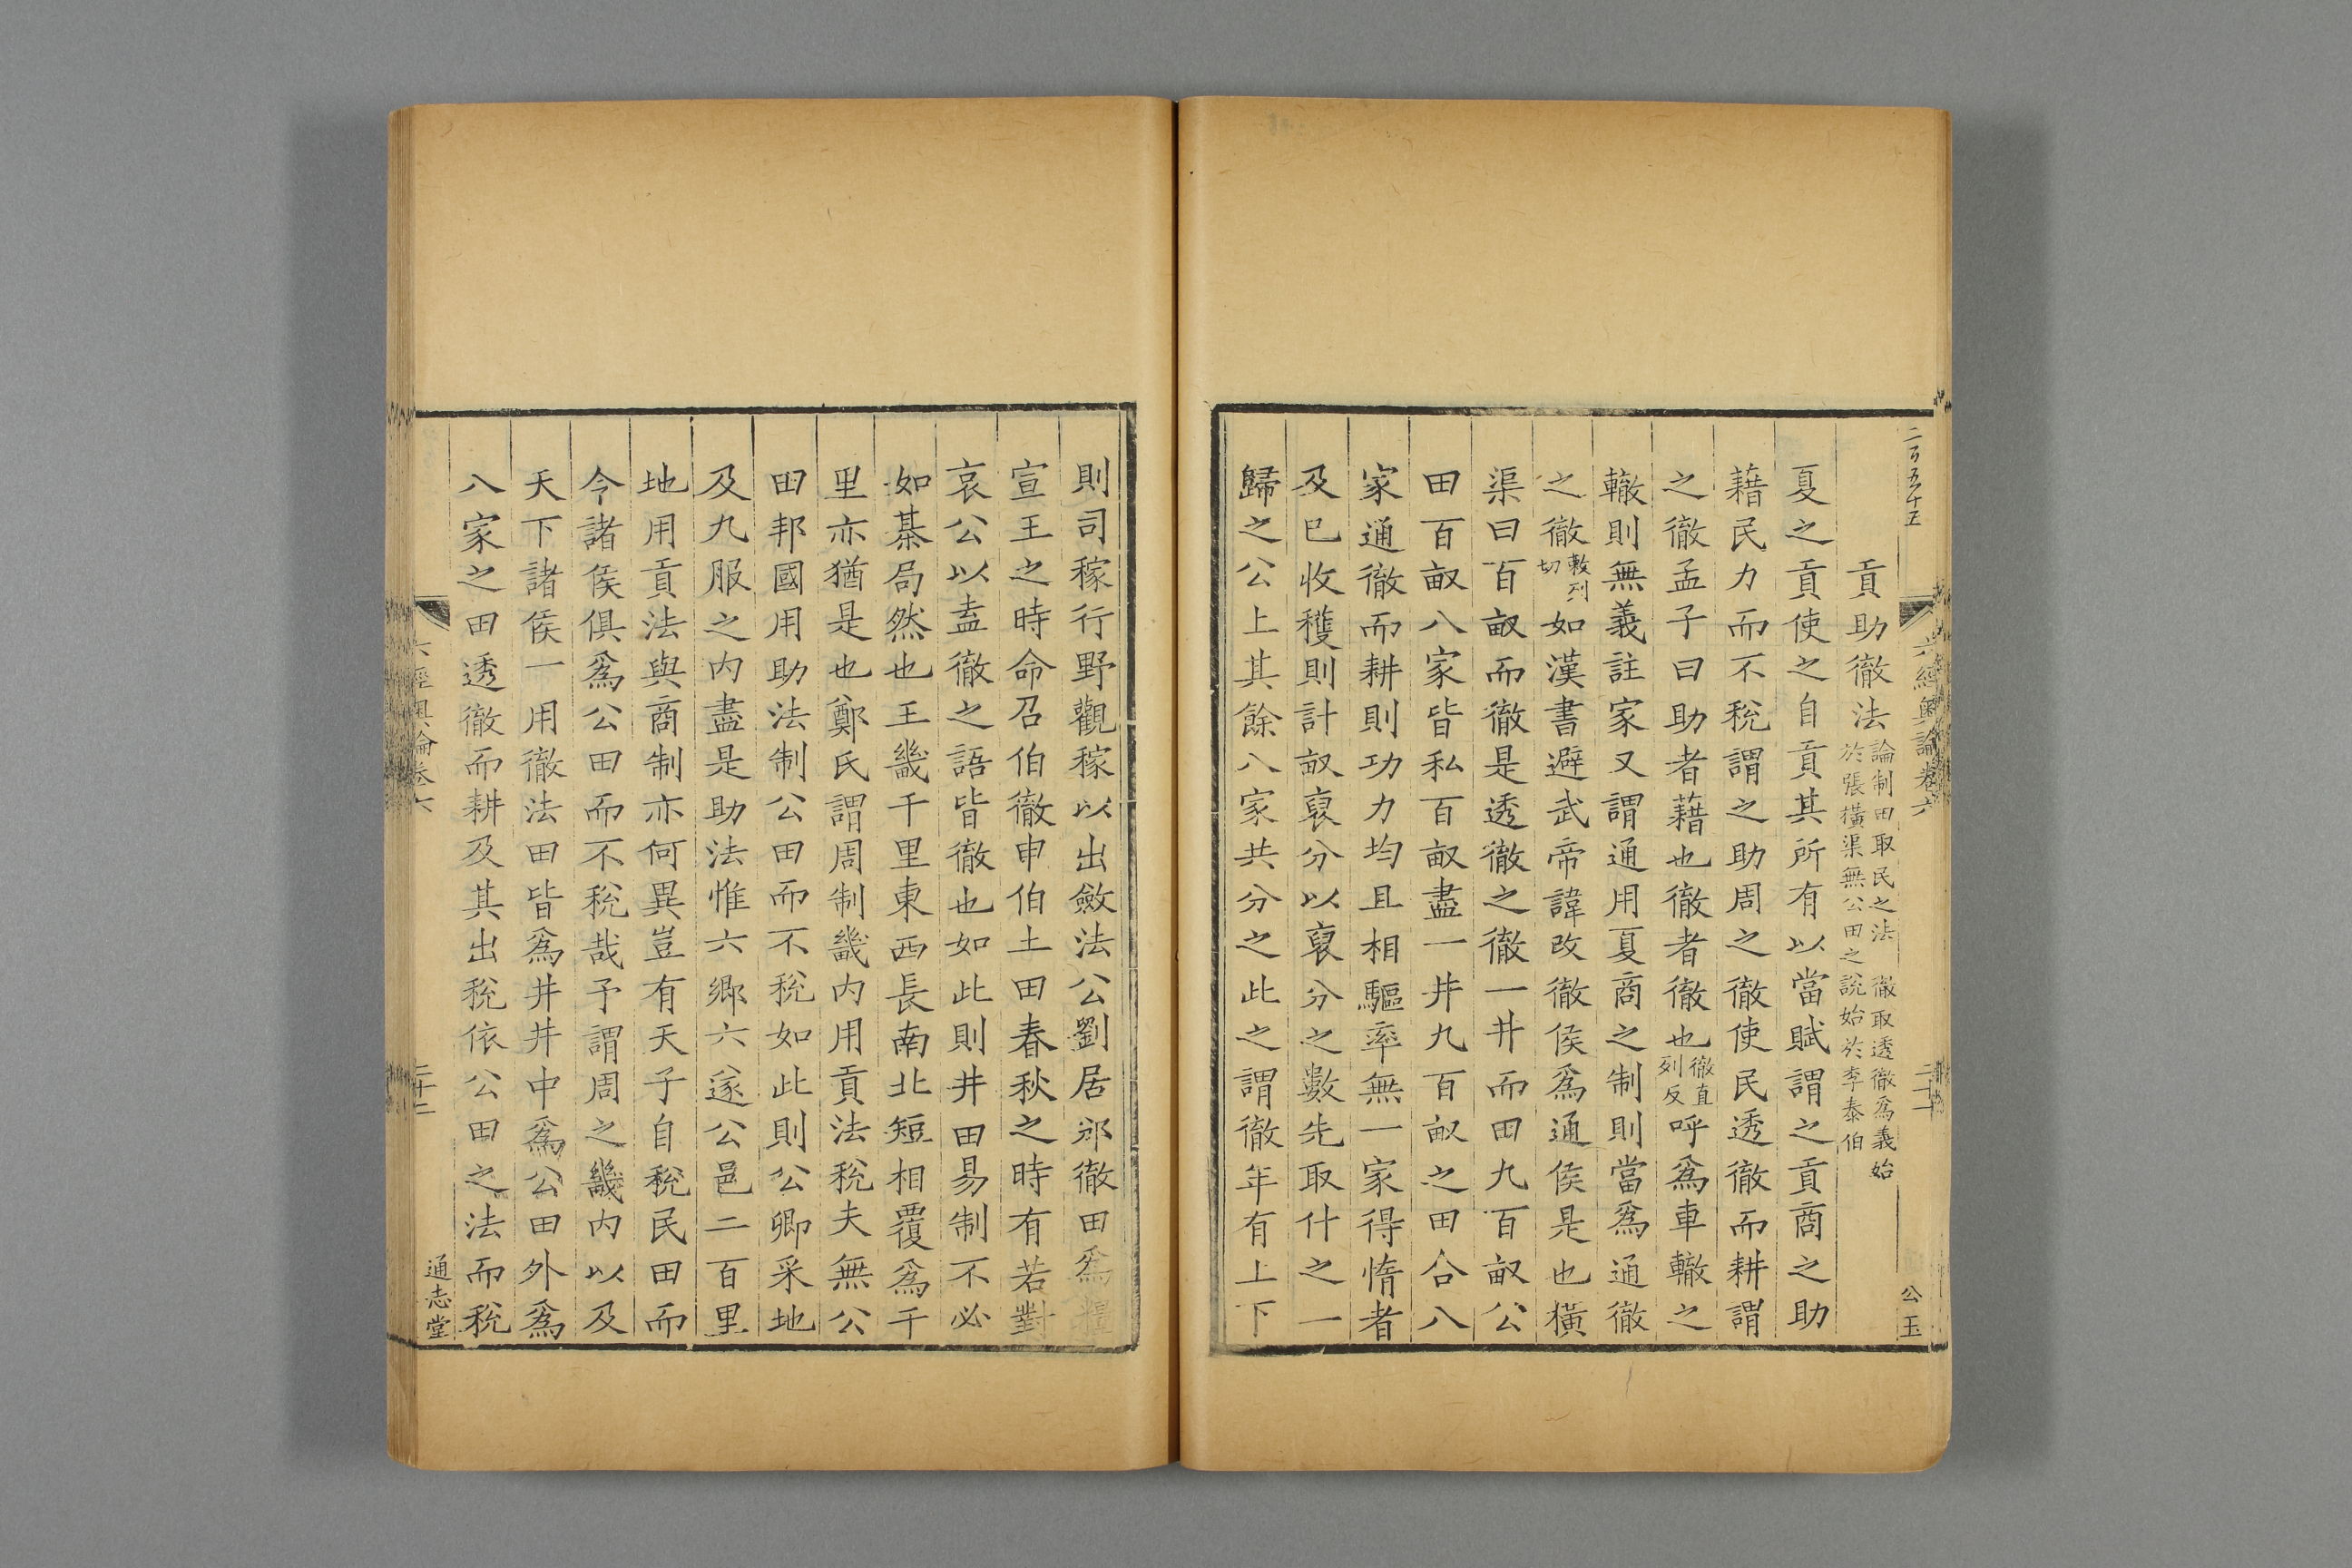 二百五十五
六經奧論卷六
二十一
公玉
貢助徹法論制田取民之法 徹取透徹爲義始於張橫渠無公田之說始於李泰伯
夏之貢使之自貢其所有以當賦謂之貢商之助
藉民力而不稅謂之助周之徹使民透徹而耕謂
之徹孟子曰助者藉也徹者徹也徹直列反呼爲車轍之
轍則無義註家又謂通用夏商之制則當爲通徹
之徹敕列切如漢書避武帝諱改徹侯爲通侯是也橫
渠曰百畝而徹是透徹之徹一井而田九百畝公
田百畝八家皆私百畝盡一井九百畝之田合八
家通徹而耕則功力均且相驅率無一家得惰者
及已收穫則計畝裒分以裒分之數先取什之一
歸之公上其餘八家共分之此之謂徹年有上下
則司稼行野觀稼以出斂法公劉居邠徹田爲糧
宣王之時命召伯徹申伯土田春秋之時有若對
哀公以盍徹之語皆徹也如此則井田易制不必
如棊局然也王畿千里東西長南北短相覆爲千
里亦猶是也鄭氏謂周制畿內用貢法稅夫無公
田邦國用助法制公田而不稅如此則公卿采地
及九服之內盡是助法惟六鄉六遂公邑二百里
地用貢法與商制亦何異豈有天子自稅民田而
令諸侯俱爲公田而不稅哉予謂周之畿內以及
天下諸侯一用徹法田皆爲井井中爲公田外爲
八家之田透徹而耕及其出稅依公田之法而稅
六經奧論卷六
二十二
通志堂